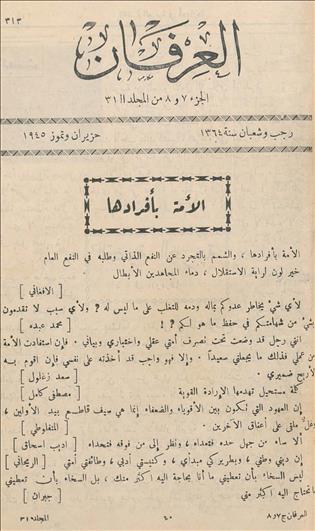 ٣١٣
العرفان
الجزء ٧ و ٨ من المجلد ٣١
رجب وشعبان سنة ١٣٦٤
حزيران وتموز ١٩٤٥
الأمة بأفرادها
الأمة بأفرادها ، والشمم بالتجرد عن النفع الذاتي وطلبه في النفع العام
خير لون لراية الاستقلال ، دماء المجاهدين الأبطال
[ الافغاني ]
لأي شيء يخاطر عدوكم بماله ودمه للتغلب على ما ليس له ? ولأي سبب لا تقدمون
بشيء من شهامتكم في حفظ ما هو لكم ? !
[ محمد عبده ]
انني رجل قد وضعت تحت تصرف أمتي عقلي واختياري وبياني . فإن استفادت الأمة
من عملي فذلك ما يجعلني سعيداً . وإلا فهو واجب قد أخذته على نفسي فإن اقوم به
لأريح ضميري .
[ سعد زغلول ]
كلمة مستحيل تهدمها الإرادة القوية
[ مصطفى كامل ]
إن العهود التي تكون بين الأقوياء والضعفاء إنما هي سيف قاطع بيد الأولين ،
وغل ملقى على أعناق الآخرين .
[ المنفلوطي ]
ألا ساء من جهل حده فتعداه ، ونظر إلى من فوقه فتحداه
[ اديب اسحاق ]
إن ديني وطني ، وبطريركي مبدأي ، وكنيستي أدبي ، وطائفتي أمتي
[ الريحاني ]
ليس السخاء بأن تعطيني ما أنا بحاجة اليه اكثر منك ، بل السخاء بأن تعطيني
ما تحتاج اليه اكثر مني
[ جبران ]
العرفان ج ٧ و ٨
٤٠
المجلد ٣١